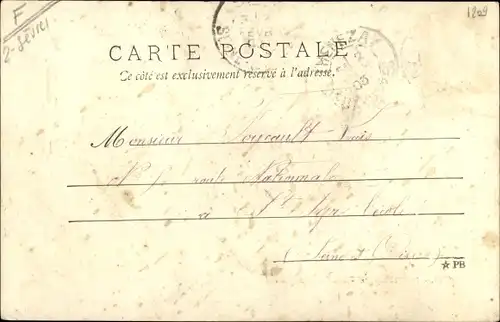 F
2-Sèvres
1209
CARTE POSTALE
Ce côté est exclusivement réservé à l'adresse.
Monsieur Louis
route Nationale
à St Cyr l'école
(Seine et Oise)
★ PB